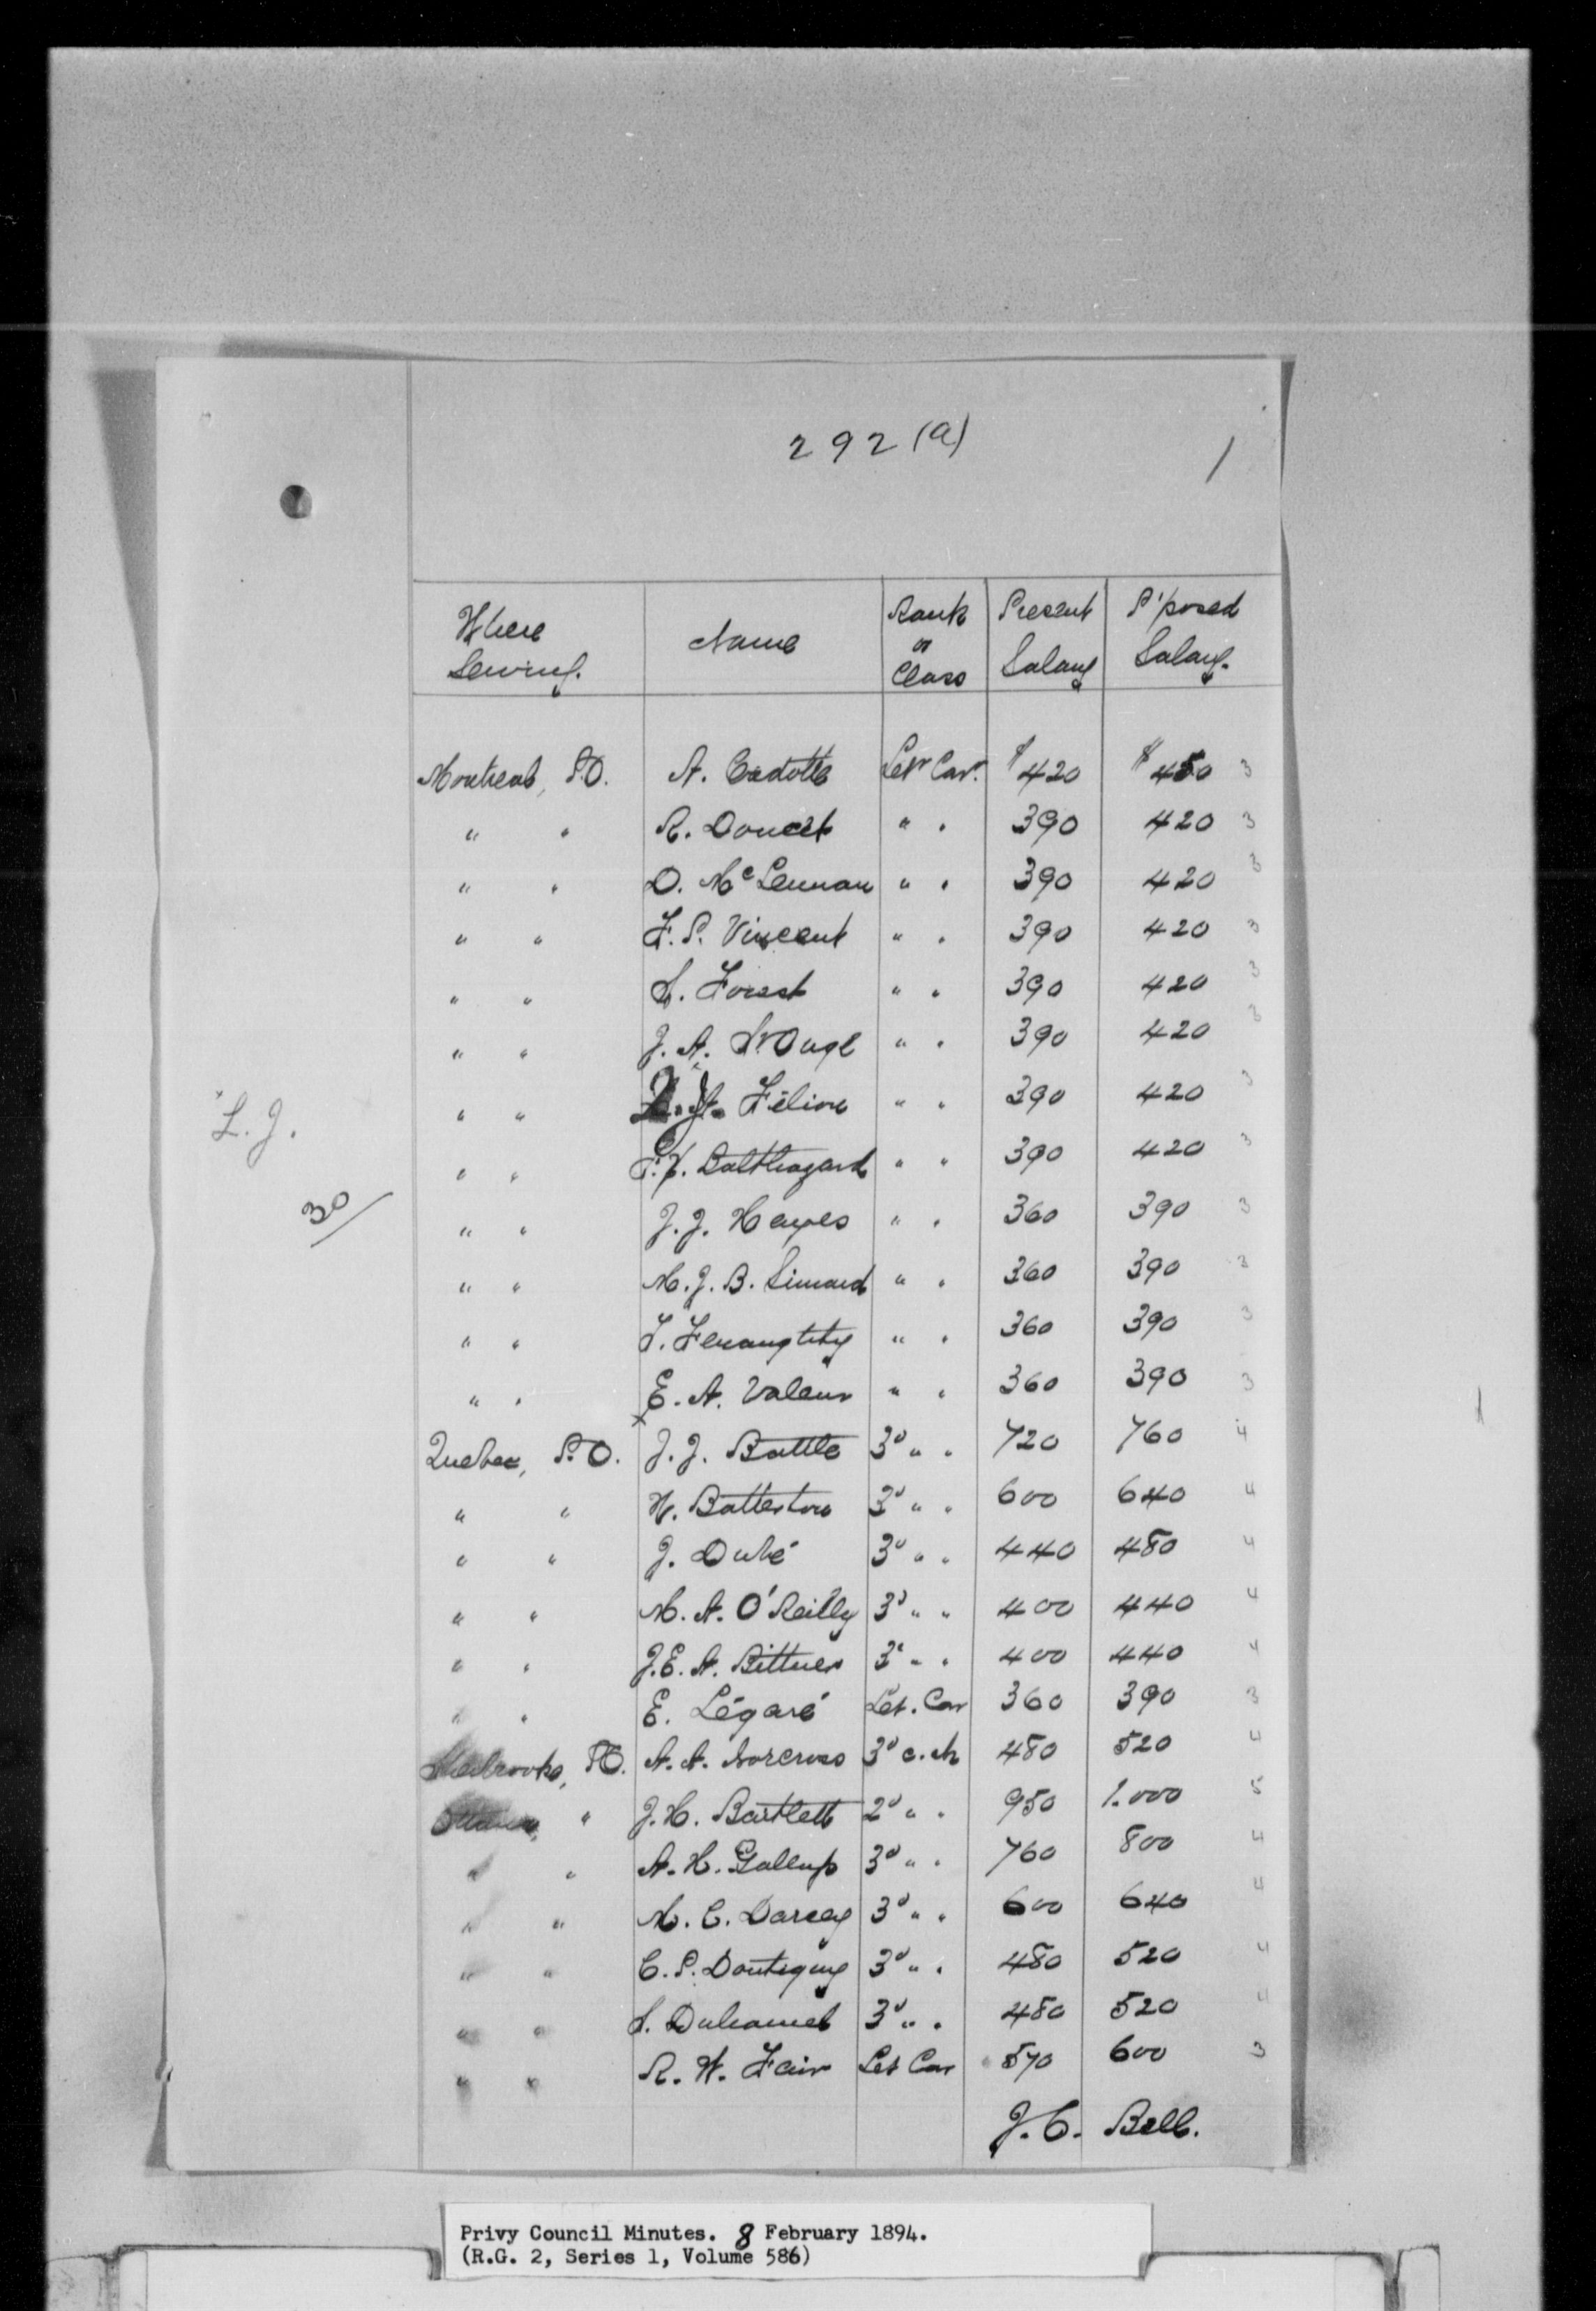 292 (a)
1
Where Serving. Name Rank or Class Present Salary P'posed Salary.
Montreal, P.O. A. Cadotte Let. Car. $420 $450 3
" " R. Doucet " " 390 420 3
" " D. McLennan " " 390 420 3
" " F.P. Vincent " " 390 420 3
" " Forest " " 390 420 3
" " J.A. " " 390 420 3
L.J.
" " Félix " " 390 420 3
" " Balthazard " " 390 420 3
30/
" " J.J. Hayes " " 360 390 3
" " M.J.B. Simard " " 360 390 3
" " " " 360 390 3
" " E.A. Valeur " " 360 390 3
Quebec, P.O. J.J. Battle 3d " " 720 760 4
" " H. 3d " " 600 640 4
" " J. Dubé 3d " " 440 480 4
" " M.A. O'Reilly 3d " " 400 440 4
" " J.E.A. Bittner 3d " " 400 440 4
" " E. Légaré Let. Car 360 390 3
Sherbrooke, P.O. A.A. Norcross 3d c. 480 520 4
Ottawa, " J.H. Bartlett 2d " " 950 1.000 5
" " A.H. Gallup 3d " " 760 800 4
" " M.C. Darcey 3d " " 600 640 4
" " C.P. Dontigny 3d " " 480 520 4
" " Duhamel 3d " " 480 520 4
" " R.W. Fair Let Car 570 600 3
J.C. Bell.
Privy Council Minutes. 8 February 1894.
(R.G. 2, Series 1, Volume 586)